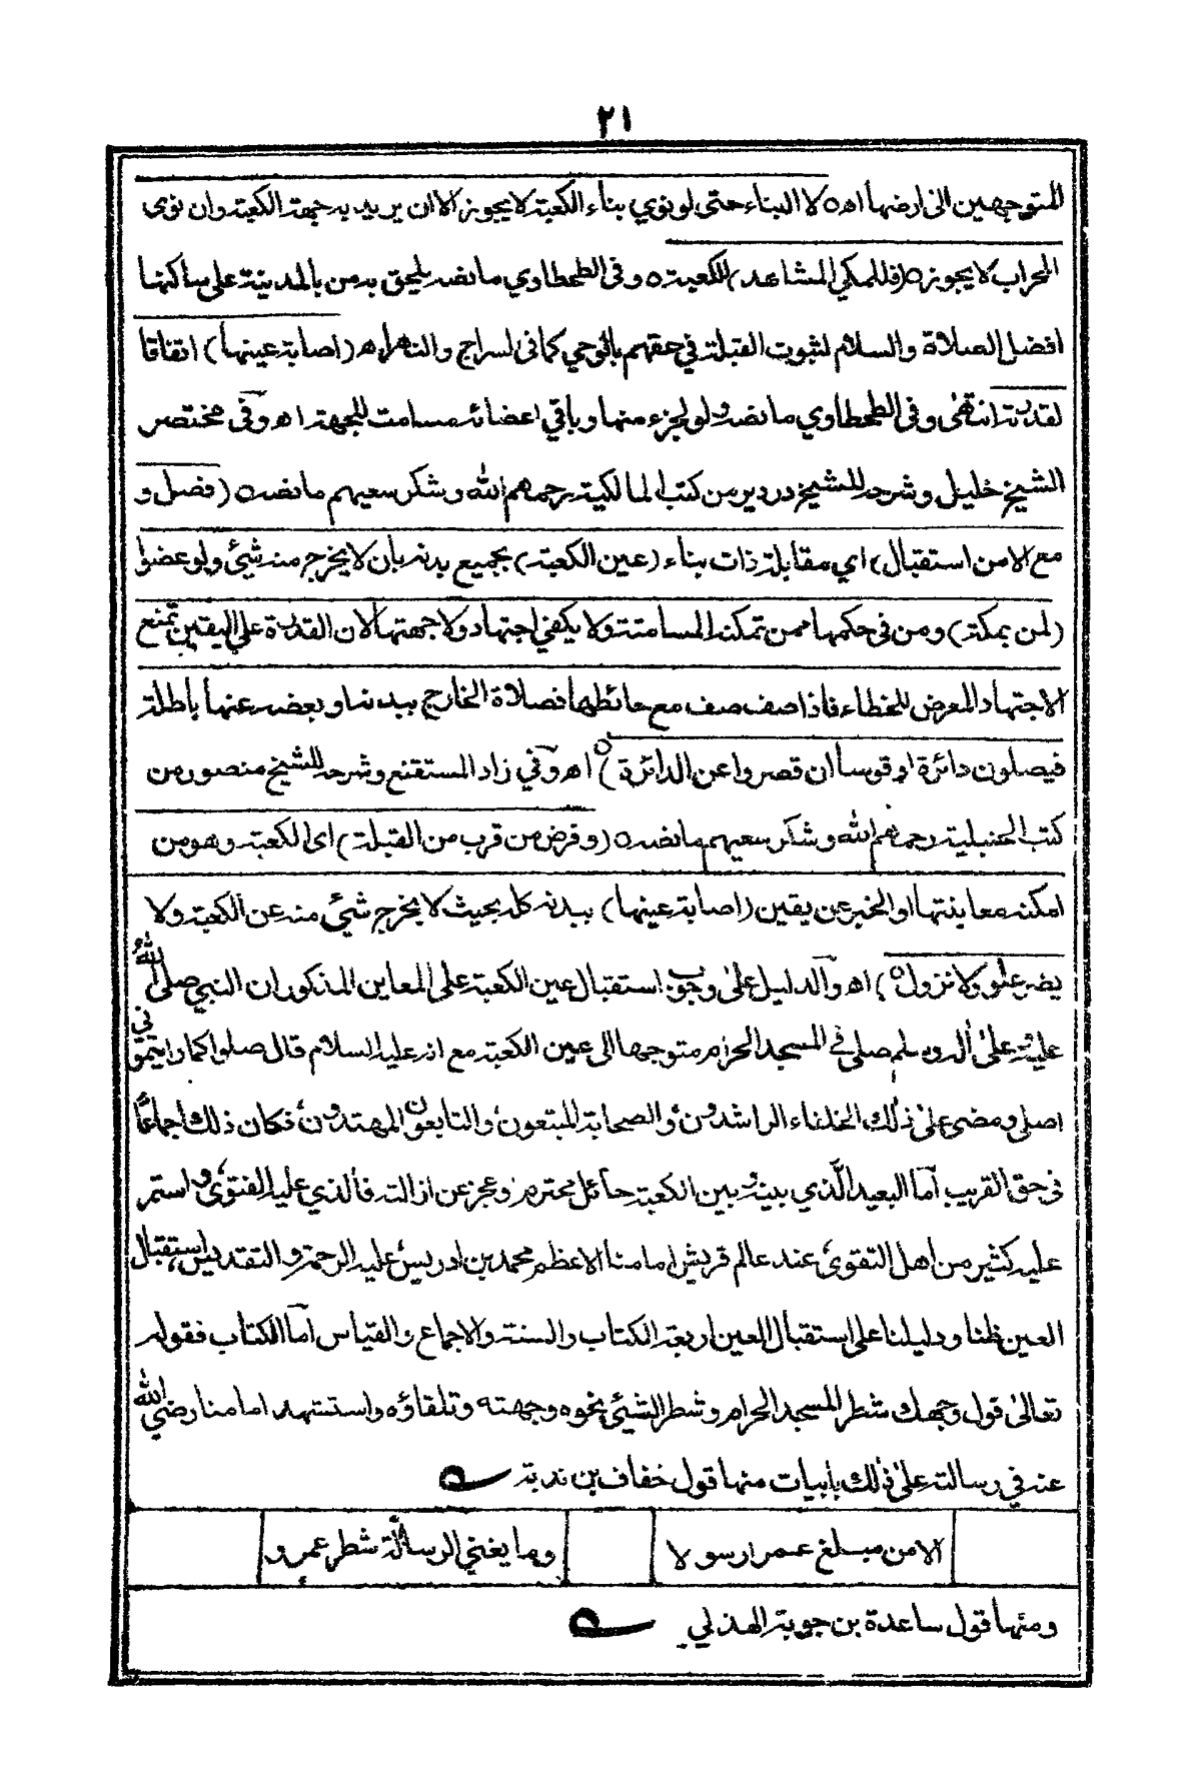 ٢١
المتوجهين الى ارضها اه ٥ لا البناء حتى لو نوي بناء الكعبة لا يجوز الا ان يريد به جهة الكعبة وان نوى
المحراب لا يجوز ٥ (فللمكي المشاهد) للكعبة ٥ وفى الطحطاوي ما نصه يلحق به من بالمدينة على ساكنها
افضل الصلاة والسلام لثبوت القبلة في حقهم بالوحي كما فى السراج والنهر اه (اصابة عينها) اتفاقا
لقدرته انتهى وفى الطحطاوي ما نصه ولو لجزء منها وباقي اعضائه مسامت للجهة اه وفى مختصر
الشيخ خليل وشرحه للشيخ دردير من كتب المالكية رحمهم الله وشكر سعيهم ما نصه ٥ (فصل و
مع الامن استقبال) اي مقابلة ذات بناء (عين الكعبة) بجميع بدنه بان لا يخرج منه شيئ ولو عضوا
(لمن بمكة) ومن فى حكمها ممن تمكنه المسامتة ولا يكفي اجتهاد ولا جهتها لان القدرة على اليقين تمنع
الاجتهاد المعرض للخطاء فاذا صف صف مع حائطها فصلاة الخارج ببدنه او بعضه عنها باطلة
فيصلون دائرة او قوسا ان قصروا عن الدائرة ٥) اه وفي زاد المستقنع وشرحه للشيخ منصور من
كتب الحنبلية رحمهم الله وشكر سعيهم ما نصه ٥ (وفرض من قرب من القبلة) اى الكعبة وهو من
امكنه معاينتها او الخبر عن يقين (اصابة عينها) ببدنه كله بحيث لا يخرج شيئ منه عن الكعبة ولا
يضر علو ولا نزول ٥) اه والدليل على وجوب استقبال عين الكعبة على المعاين المذكور ان النبي صلى الله
عليه وعلى اله وسلم صلى في المسجد الحرام متوجها الى عين الكعبة مع انه عليه السلام قال صلوا كما رايتموني
اصلي ومضى على ذلك الخلفاء الراشدون والصحابة المتبعون والتابعون المهتدون فكان ذلك اجماعا
فى حق القريب اما البعيد الذي بينه وبين الكعبة حائل محترم وعجز عن ازالته فالذي عليه الفتوى واستمر
عليه كثير من اهل التقوى عند عالم قريش امامنا الاعظم محمد بن ادريس عليه الرحمة والتقديس استقبال
العين ظنا ودليلنا على استقبال العين اربعة الكتاب والسنة والاجماع والقياس اما الكتاب فقوله
تعالى فول وجهك شطر المسجد الحرام وشطر الشيئ نحوه وجهته وتلقاؤه واستشهد امامنا رضي الله
عنه في رسالته على ذلك بابيات منها قول خفاف بن ندبة
الا من مبلغ عمرا رسولا وما يغني الرسالة شطر عمرو
ومنها قول ساعدة بن جوية الهذلي